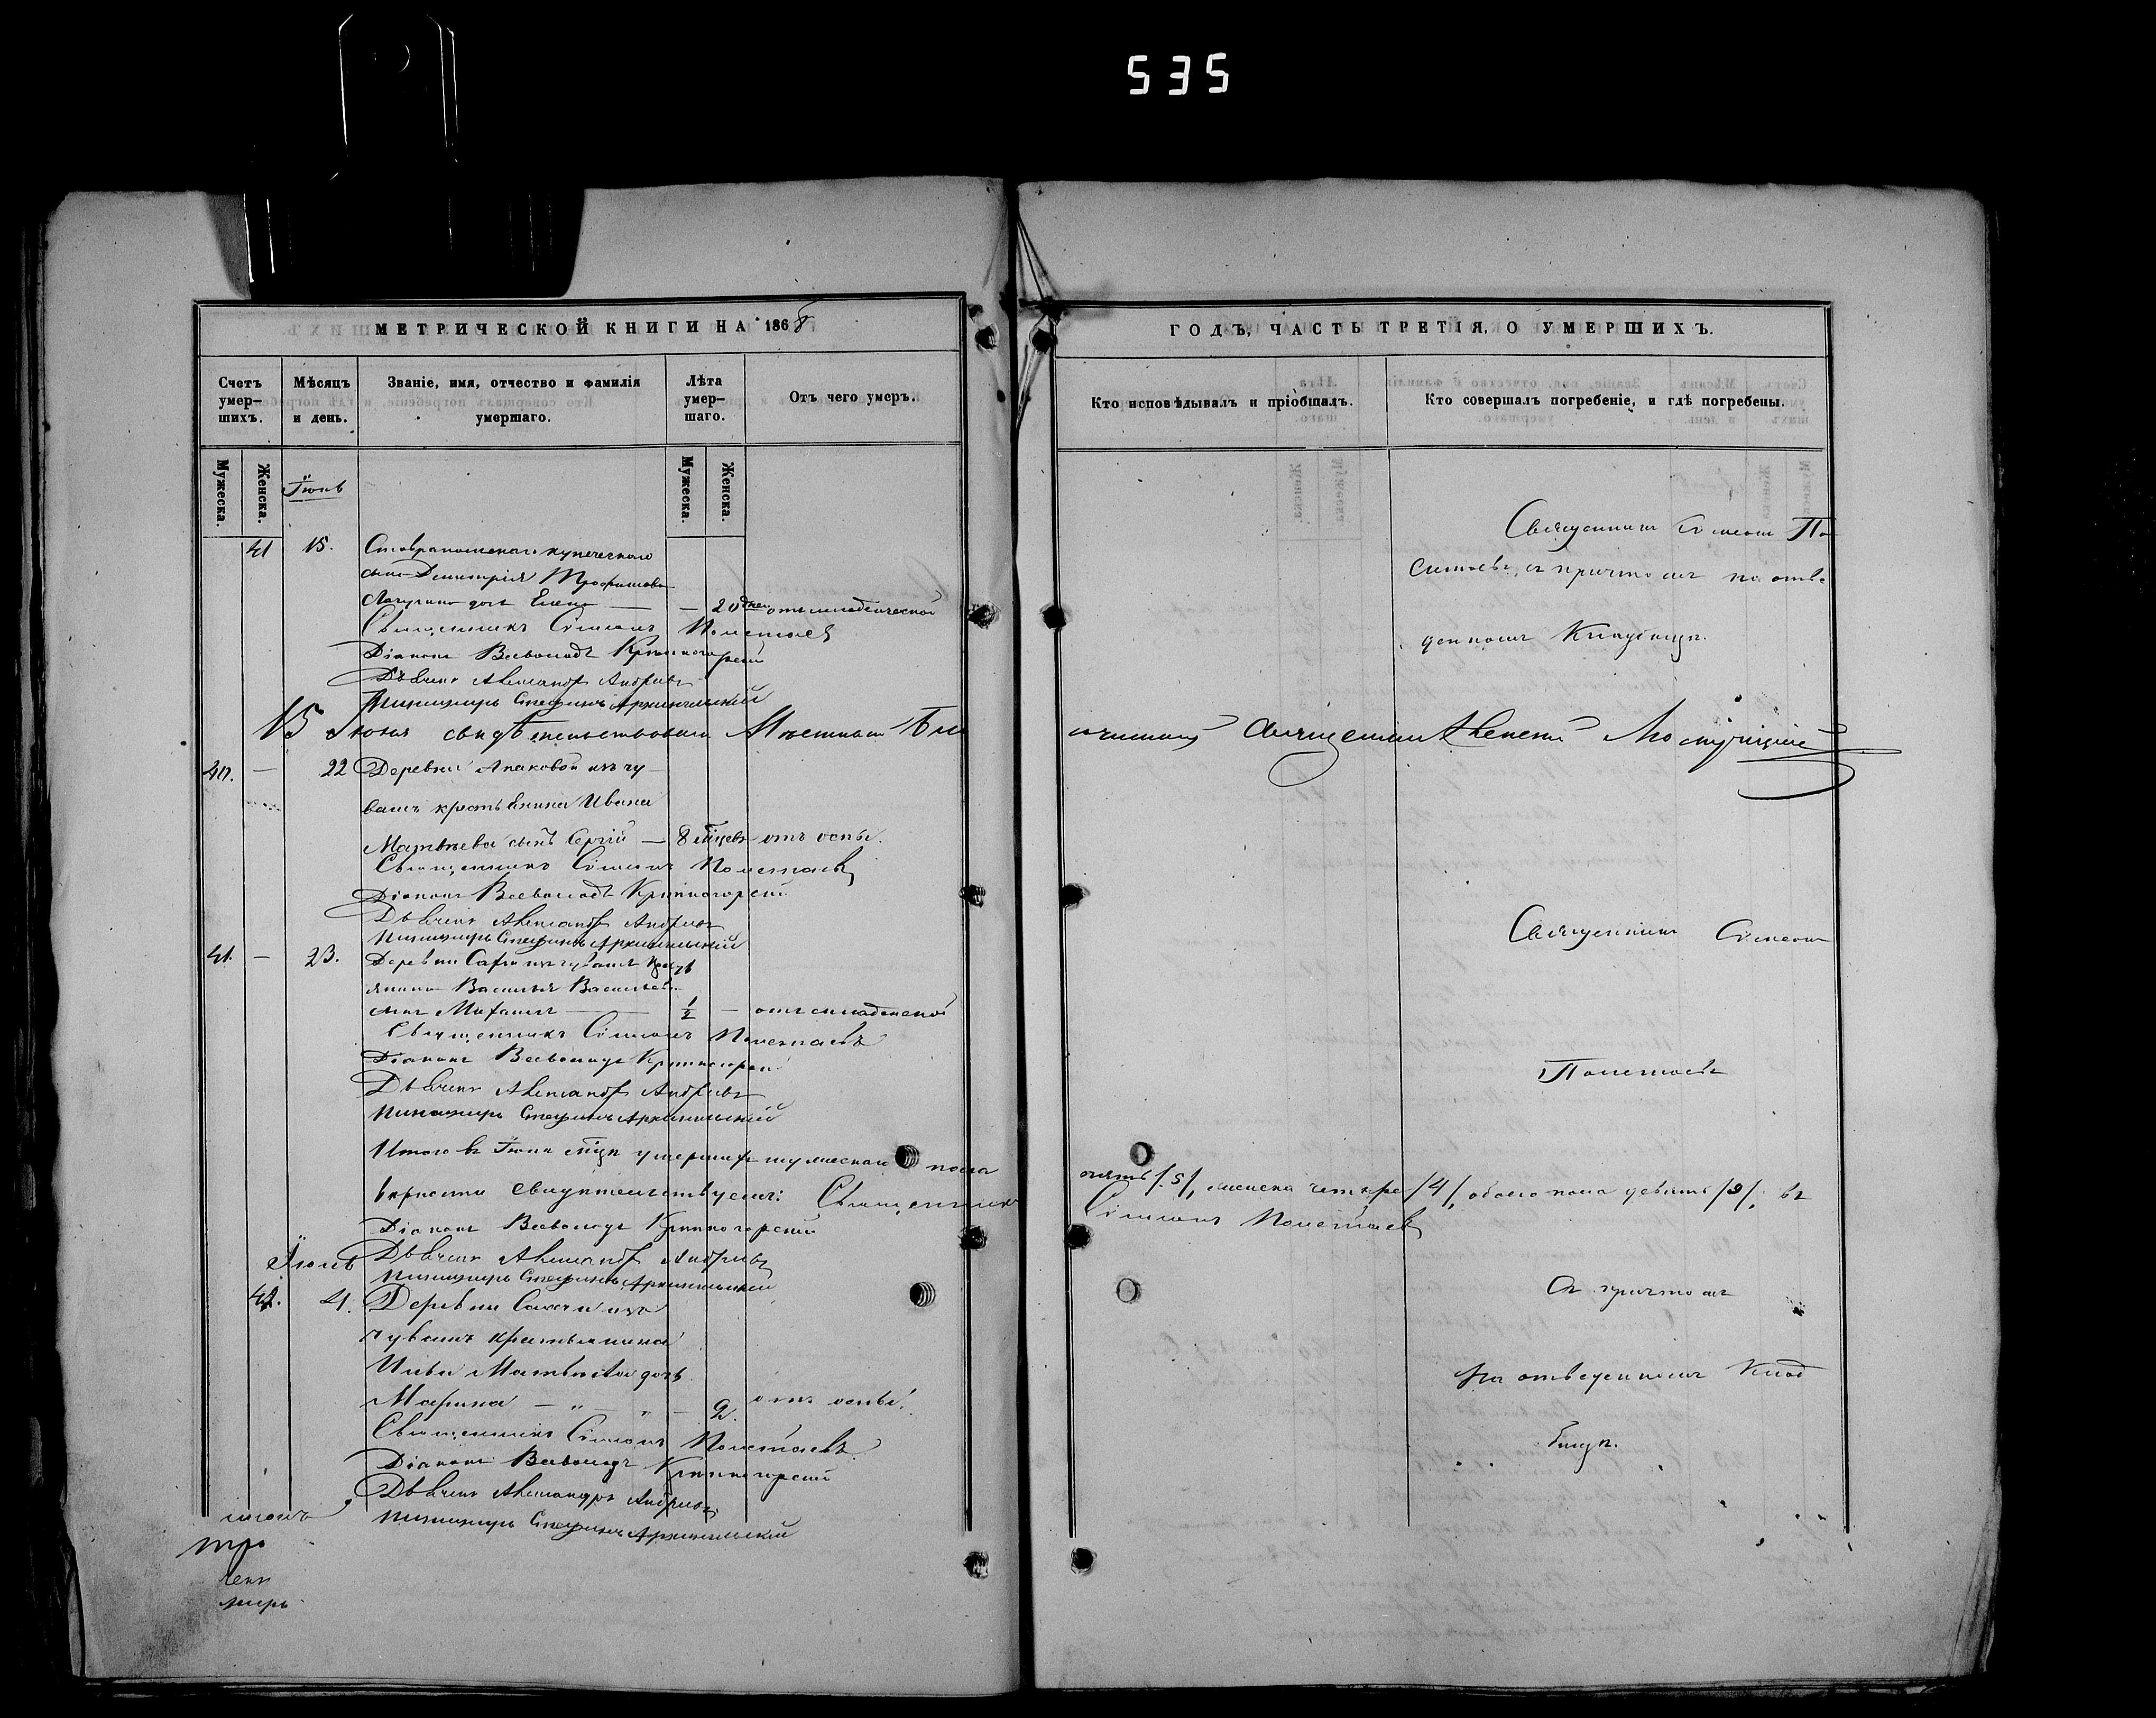 535
МЕТРИЧЕСКОЙ КНИГИ НА 1868
Счетъ умершихъ.
Мѣсяцъ и день.
Званіе, имя, отчество и фамилія умершаго.
Лѣта умершаго.
Отъ чего умеръ.
Мужеска.
Женска.
Мужеска.
Женска.
Іюнь
41 15. Ставропольскаго купеческаго
сына Димитрія Трофимова
дочь Елена — — 20 дней отъ младенческой
Священникъ Симеонъ Полетаевъ
Діаконъ Всеволодъ
Дьячекъ Александръ Андреевъ
Пономарь Стефанъ Архангельскій
15 Іюня свидѣтельствовалъ Мѣстный Бла
40. — 22 Деревни Апаковой изъ чу
вашъ крестьянина Ивана
Матвѣева сынъ Сергій — 8 мѣцевъ отъ оспы.
Священникъ Симеонъ Полетаевъ
Діаконъ Всеволодъ
Дьячекъ Александръ Андреевъ
Пономарь Стефанъ Архангельскій
41. — 23. Деревни изъ чувашъ кресть
янина Василья Васильева
сынъ — ½ — отъ младенской
Священникъ Симеонъ Полетаевъ
Діаконъ Всеволодъ
Дьячекъ Александръ Андреевъ
Пономарь Стефанъ Архангельскій
Итого въ Іюнѣ мцѣ умершихъ мужескаго пола
вѣрности свидѣтельствуемъ: Священникъ
Діаконъ Всеволодъ
Дьячекъ Александръ Андреевъ
Іюль
Пономарь Стефанъ Архангельскій
42. 4. Деревни изъ
чувашъ крестьянина
Ильи Матвѣева дочь
Марина — " — " — 2. отъ оспы.
Священникъ Симеонъ Полетаевъ
Діаконъ Всеволодъ
Дьячекъ Александръ Андреевъ
Пономарь Стефанъ Архангельскій
ГОДЪ, ЧАСТЬ ТРЕТІЯ, О УМЕРШИХЪ.
Кто исповѣдывалъ и пріобщалъ.
Кто совершалъ погребеніе, и гдѣ погребены.
Священникъ Симеонъ По
летаевъ, съ причтомъ на отве
денномъ Кладбищѣ.
гочинный Священникъ Алексей
Священникъ Симеонъ
Полетаевъ
пять /5/, женска четыре /4/, обоего пола девять /9/; въ
Симеонъ Полетаевъ
съ причтомъ
на отведенномъ Клад
бищѣ.